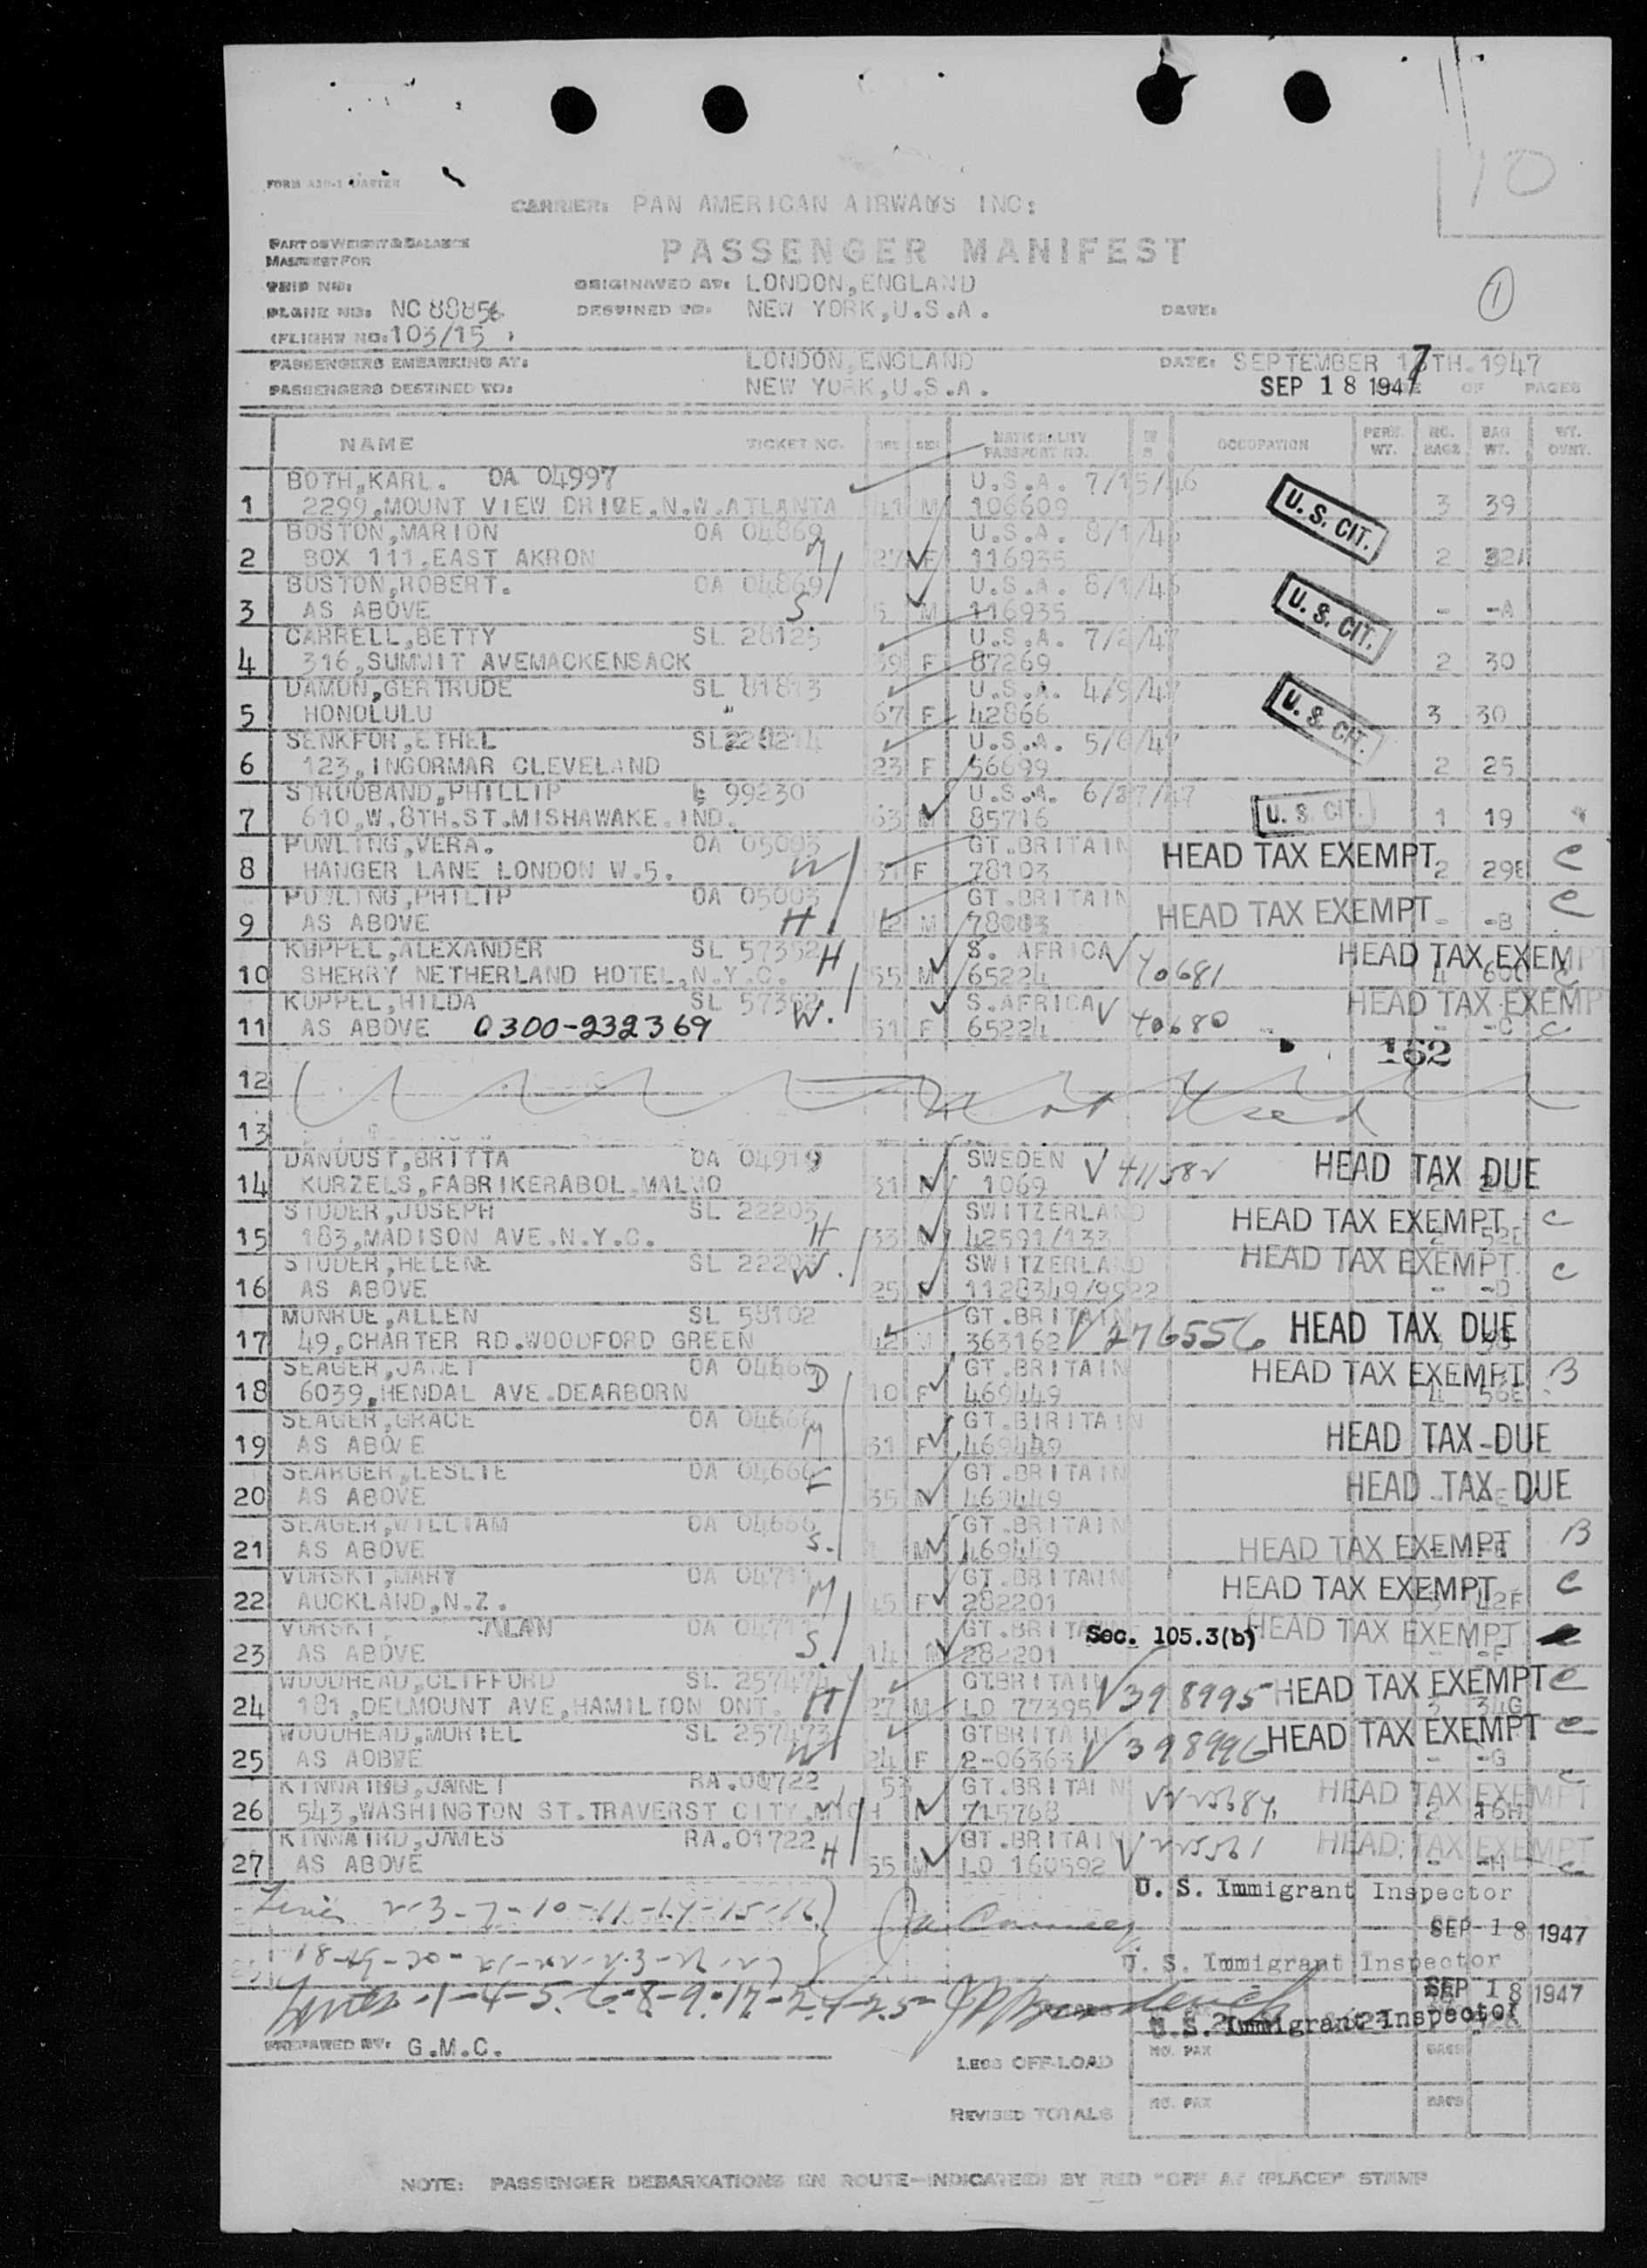 10
CARRIER: PAN AMERICAN AIRWAYS INC:
PART OF WEIGHT & BALANCE
MANIFEST FOR
PASSENGER MANIFEST
1
TRIP NO:
ORIGINATED AT: LONDON,ENGLAND
PLANE NO: NC 88856
DESTINED TO: NEW YORK,U.S.A.
DATE:
(FLIGHT NO: 103/15 )
PASSENGERS EMBARKING AT: LONDON,ENGLAND
DATE: SEPTEMBER 17TH.1947
PASSENGERS DESTINED TO: NEW YORK,U.S.A.
SEP 18 1947 OF PAGES
NAME TICKET NO. AGE SEX NATIONALITY PASSPORT NO. OCCUPATION PERS. WT. NO. BAGS BAG WT. WT. OVNT.
BOTH,KARL. OA 04997 U.S.A. 7/15/46
1 2299,MOUNT VIEW DRIVE.N.W.ATLANTA 41 M 106609 U.S. CIT. 3 39
BOSTON,MARION OA 04869 U.S.A. 8/1/46
2 BOX 111,EAST AKRON M 27 F 116935 2 32A
BOSTON,ROBERT. OA 04869 U.S.A. 8/1/46
3 AS ABOVE S M 116935 U.S. CIT. - -A
CARRELL,BETTY SL 28125 U.S.A. 7/2/47
4 316,SUMMIT AVEMACKENSACK 39 F 87269 2 30
DAMON,GERTRUDE SL 81813 U.S.A. 4/9/47
5 HONOLULU " 67 F 42866 U.S. CIT. 3 30
SENKFOR,ETHEL U.S.A. 5/6/47
6 123,INGORMAR CLEVELAND 23 F 56699 2 25
STROUBAND,PHILLIP 99230 U.S.A.
7 610,W.8TH.ST.MISHAWAKE.IND. 63 M 85716 U.S. CIT. 1 19
POWLING,VERA. OA 05003 GT.BRITAIN HEAD TAX EXEMPT
8 HANGER LANE LONDON W.5. W F 78103 2 29B C
POWLING,PHILIP OA 05003 GT.BRITAIN HEAD TAX EXEMPT C
9 AS ABOVE H. 42 M -B
KOPPEL,ALEXANDER SL 57352 H S. AFRICA V 40681 HEAD TAX EXEMPT
10 SHERRY NETHERLAND HOTEL,N.Y.C. 55 M 65224 4 60C C
KOPPEL,HILDA SL 57352 W. S.AFRICA V 40680 HEAD TAX EXEMP
11 AS ABOVE 0300-232369 51 F 65224 - -C C
162
12 Not Used
13
DANQUST,BRITTA OA 04919 SWEDEN V 411582 HEAD TAX DUE
14 KURZELS,FABRIKERABOL.MALMO 31 1069
STUDER,JOSEPH SL 22205 SWITZERLAND HEAD TAX EXEMPT C
15 183,MADISON AVE.N.Y.C. H 33 M 42591/133 2 52D
STUDER,HELENE SL 22205 W. SWITZERLAND HEAD TAX EXEMPT C
16 AS ABOVE 25 F 1128349/9922 - -D
MUNROE,ALLEN SL 58102 GT.BRITAIN
17 49,CHARTER RD.WOODFORD GREEN 42 M 363162 V 276556 HEAD TAX DUE
SEAGER,JANET OA 04666 D GT.BRITAIN HEAD TAX EXEMPT B
18 6039,HENDAL AVE.DEARBORN 10 F 469449 4 56E
SEAGER,GRACE OA 04666 GT.BIRITAIN
19 AS ABOVE M 31 F 469449 HEAD TAX DUE
SEARGER,LESLIE OA 04666 F GT.BRITAIN
20 AS ABOVE 35 M 469449 HEAD TAX DUE
SEAGER,WILLIAM OA 04666 GT.BRITAIN
21 AS ABOVE S. M 469449 HEAD TAX EXEMPT B
VORSKI,MARY OA 04711 GT.BRITAIN
22 AUCKLAND,N.Z. M 45 F 282201 HEAD TAX EXEMPT 42F C
VORSKI, ALAN OA 04711 GT.BRITAIN Sec. 105.3(b) HEAD TAX EXEMPT
23 AS ABOVE S. 14 M 282201 - -F
WOODHEAD,CLIFFORD SL 257474 GTBRITAIN
24 181,DELMOUNT AVE,HAMILTON ONT. H 27 M LD 77395 V 398995 HEAD TAX EXEMPT 3 34G C
WOODHEAD,MURIEL SL 257473 GTBRITAIN
25 AS AOBVE W 24 F 2-06363 V 398996 HEAD TAX EXEMPT - -G C
KINNAIRD,JANET RA.01722 53 GT.BRITAIN HEAD TAX EXEMPT C
26 543,WASHINGTON ST.TRAVERST CITY.MICH 715768 2 16H
KINNAIRD,JAMES RA.01722 H GT.BRITAIN HEAD TAX EXEMPT
27 AS ABOVE 55 M LD 160592 - -H C
U. S. Immigrant Inspector
Lines 2-3-7-10-11-14-15-16
SEP 18 1947
U. S. Immigrant Inspector
SEP 18 1947
U.S. Immigrant Inspector
PREPARED BY: G.M.C.
LESS OFF-LOAD NO. PAX BAGS
REVISED TOTALS NO. PAX BAGS
NOTE: PASSENGER DEBARKATIONS EN ROUTE-INDICATED BY RED "OFF AT (PLACE)" STAMP